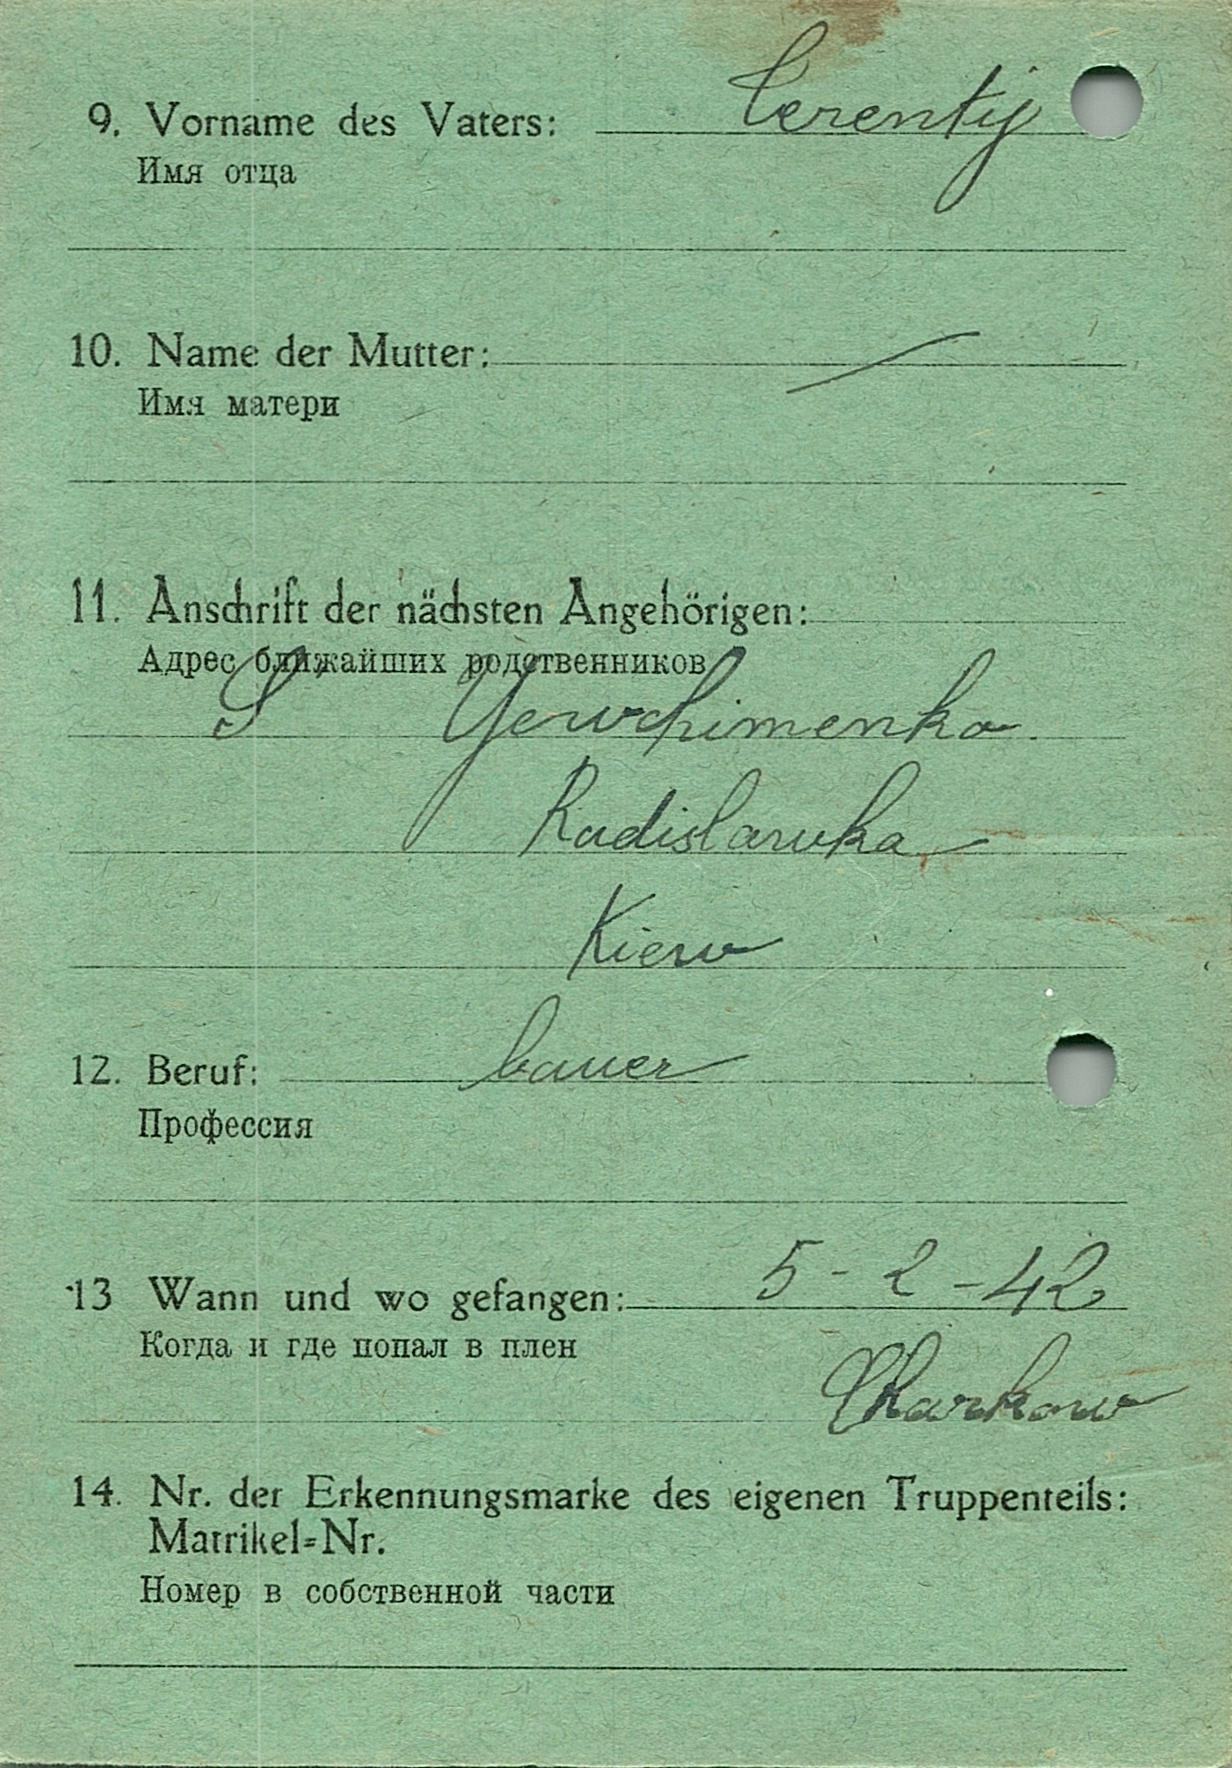 9. Vorname des Vaters: Terentij
Имя отца
10. Name der Mutter:
Имя матери
11. Anschrift der nächsten Angehörigen:
Адрес ближайших родственников
S Yewchimenko
Radislawka
Kiew
12. Beruf: bauer
Профессия
13 Wann und wo gefangen: 5-2-42
Когда и где попал в плен
Charkow
14. Nr. der Erkennungsmarke des eigenen Truppenteils:
Matrikel=Nr.
Номер в собственной части